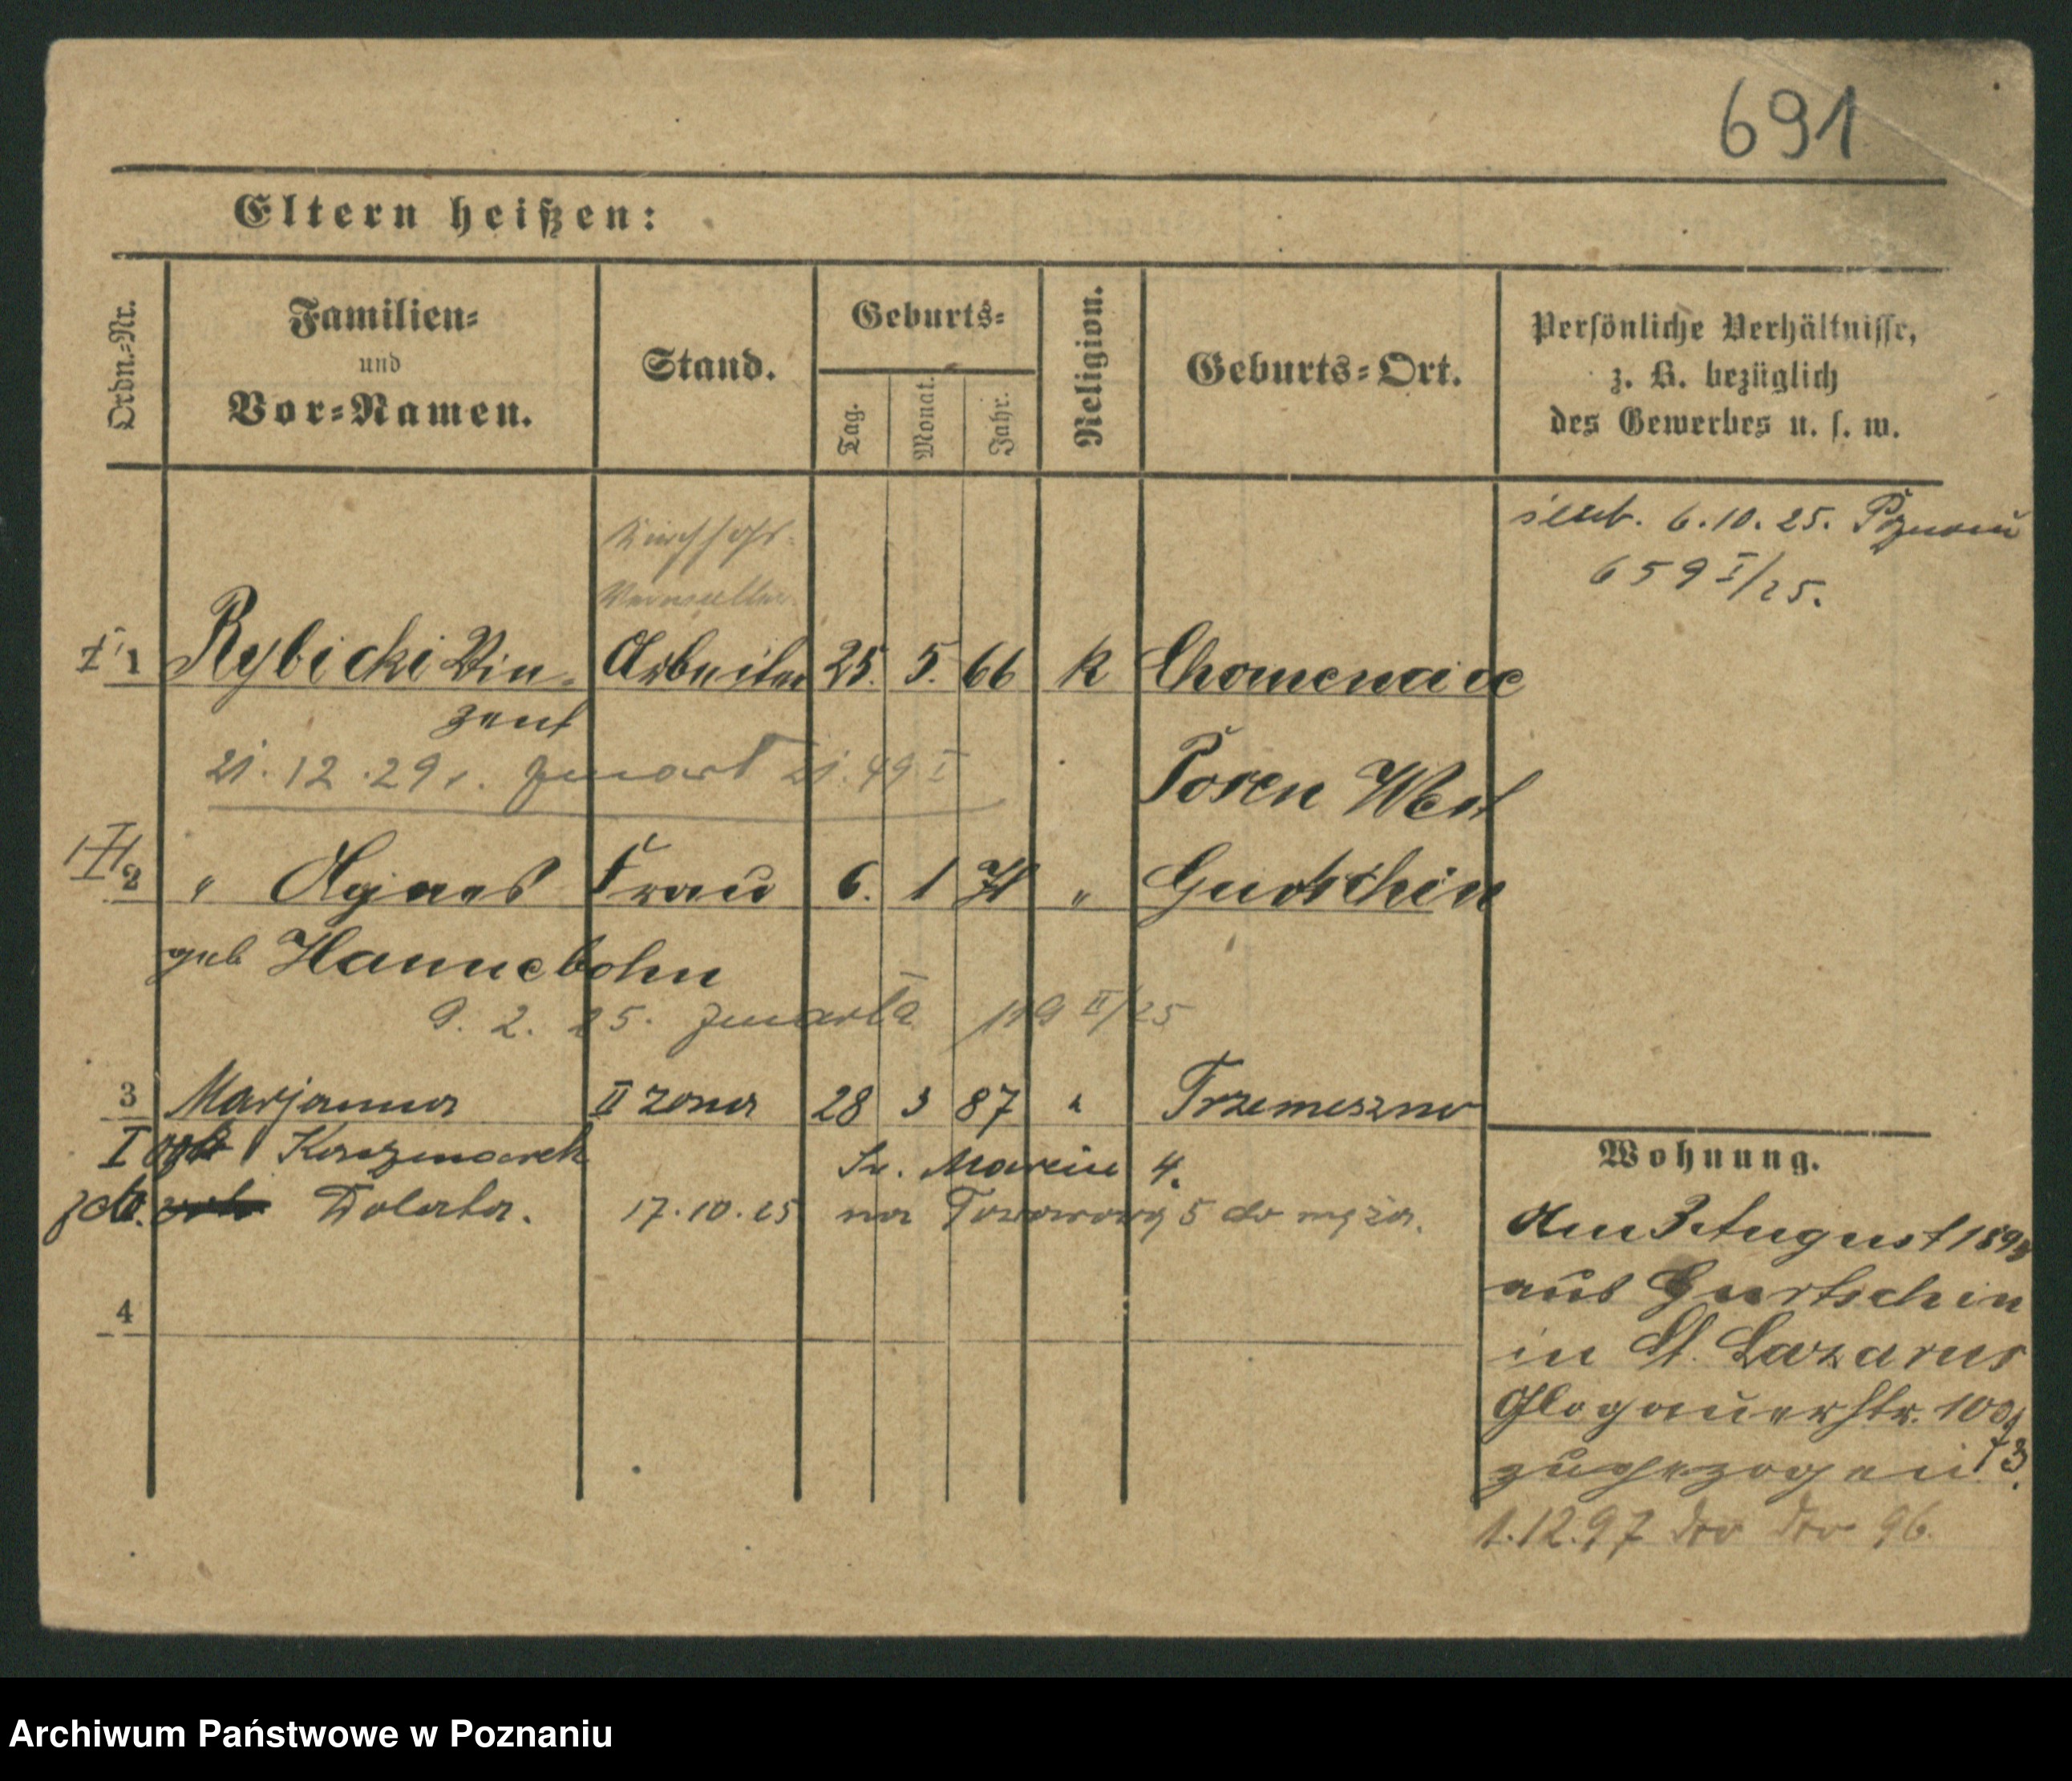 691
Eltern heißen:
Ordn.-Nr.
Familien-
und
Vor-Namen.
Stand.
Geburts-
Tag.
Monat.
Jahr.
Religion.
Geburts-Ort.
Persönliche Verhältnisse,
z. B. bezüglich
des Gewerbes u. s. w.
ślub. 6.10.25. Poznań
659 I/25.
Kirchhofs-
I 1 Rybicki Vin- Arbeiter 25. 5. 66 K
zent
21.12.29 r. zmarł 49 I
Posen West
II 2 " Agnes Frau 6. 1 71 " Gurtschin
geb Hannebohn
9. 2. 25. zmarła 119 II/25
3 Marjanna II żona 28 3 87 " Trzemeszno
I Kaczmarek Św. Marcin 4.
Dolata. 17.10.25 na Towarową 5 do męża.
4
Wohnung.
Am 3 August 189
aus Gurtschin
in St. Lazarus
Glogauerstr. 100
zugezogen
1.12.97 dto dto 96.
Archiwum Państwowe w Poznaniu